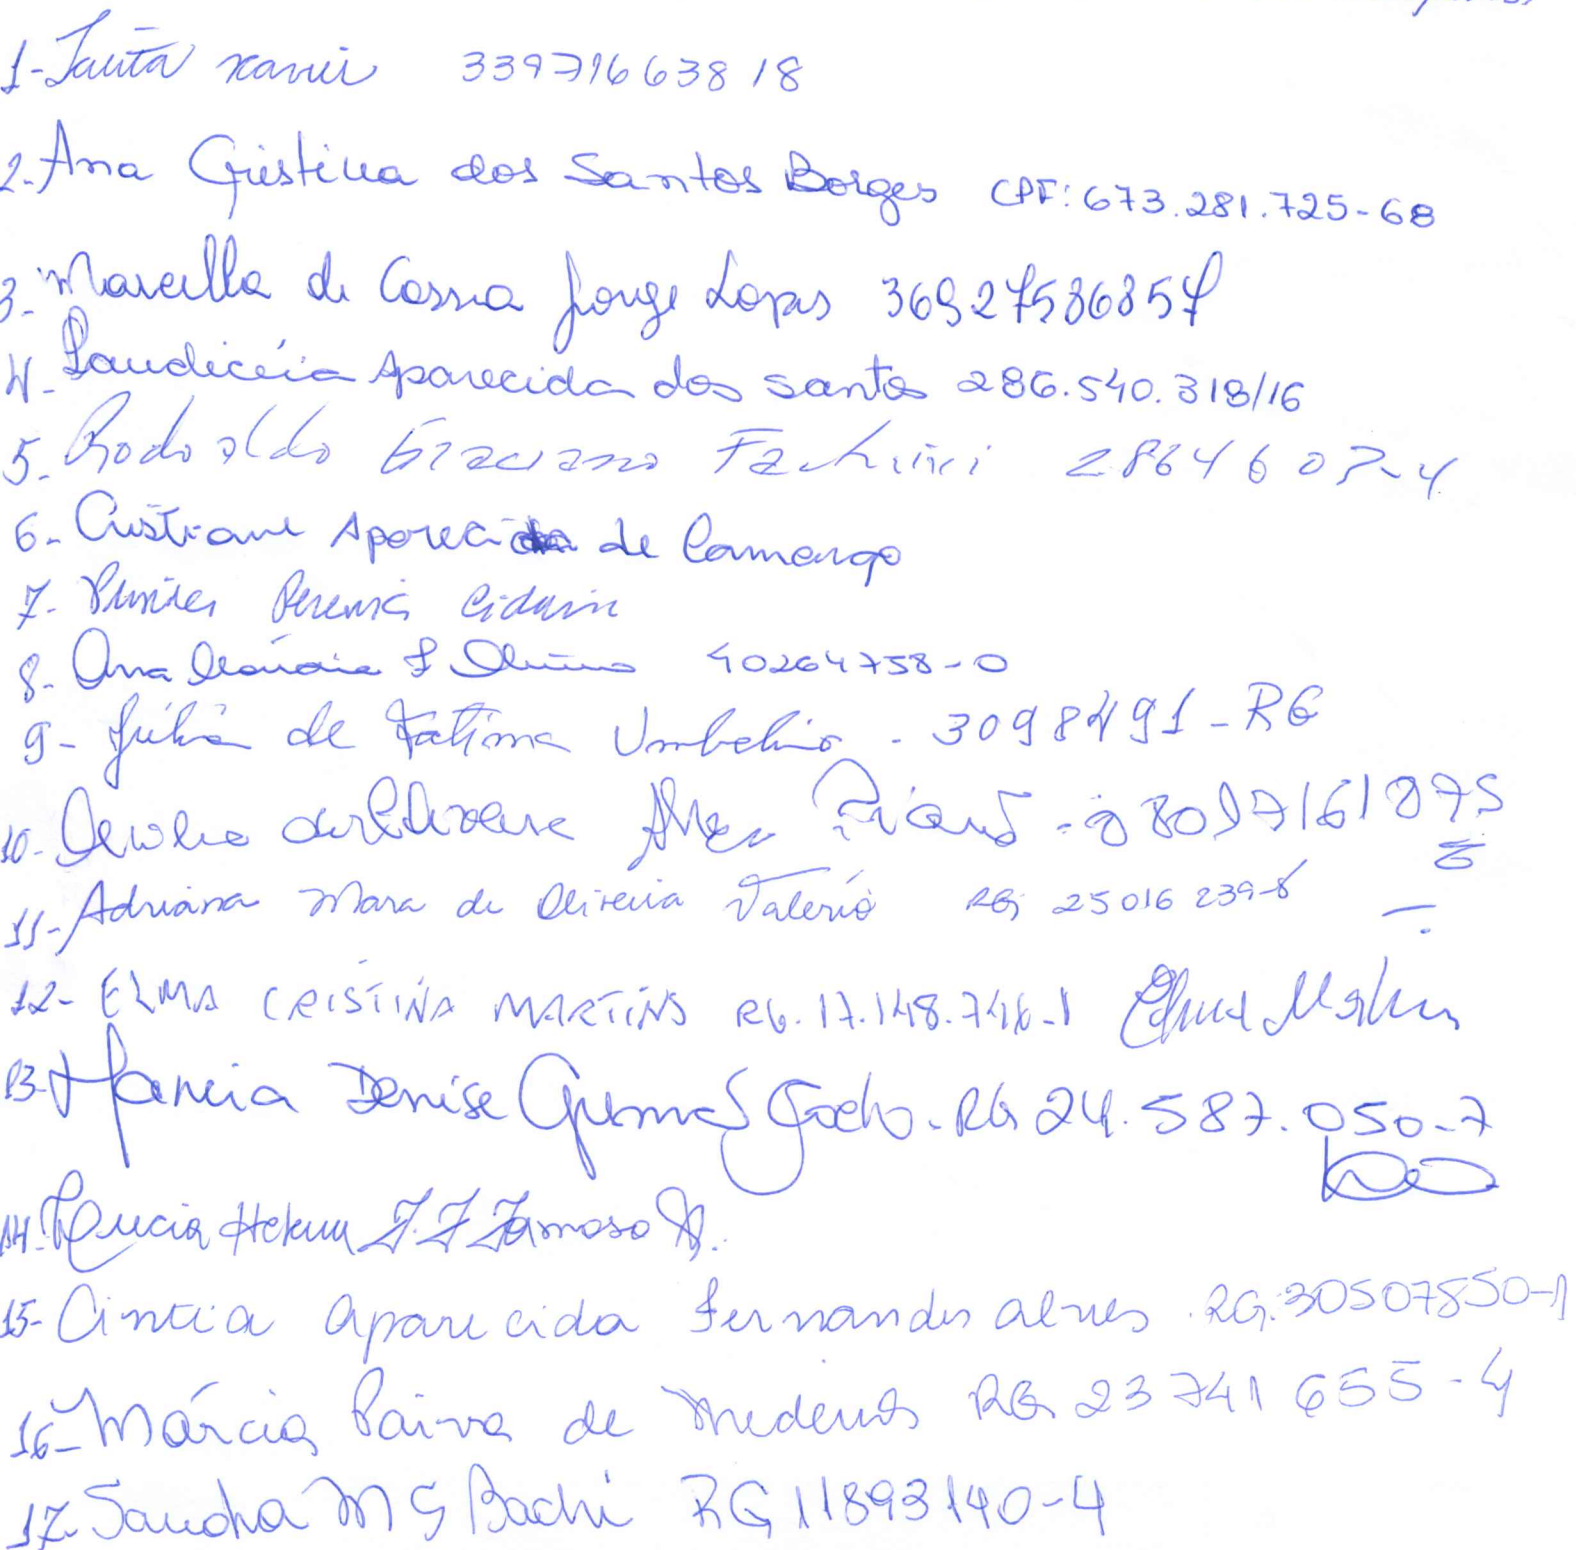 1- Tauta xavier 33971663818
2- Ana Cristina dos Santos Borges CPF: 673.281.725-68
3- Marcella de Cassia Jorge Lopes 36927586857
4- Laudicéia Aparecida dos santos 286.540.318/16
5- Rodoaldo Graciano Fachini 2864607-4
6- Cristiane Aparecida de Camargo
7- Pereira
8- Ana 40264758-0
9- Júlia de Fatima Umbelino - 3098491-RG
10-
11- Adriana Mara de Oliveira Valério RG 25016239-8
12- ELMA CRISTINA MARTINS RG.17.148.746-1 Elma Martins
13- Marcia Denise Godo - RG 24.587.050-7
14- Lucia Helena J.J Zamoso
15- Cintia Aparecida Fernandes alves RG:30507550-1
16- Márcia Paiva de Medeiros RG 23741655-4
17- Sandra M G Bachi RG 11893140-4